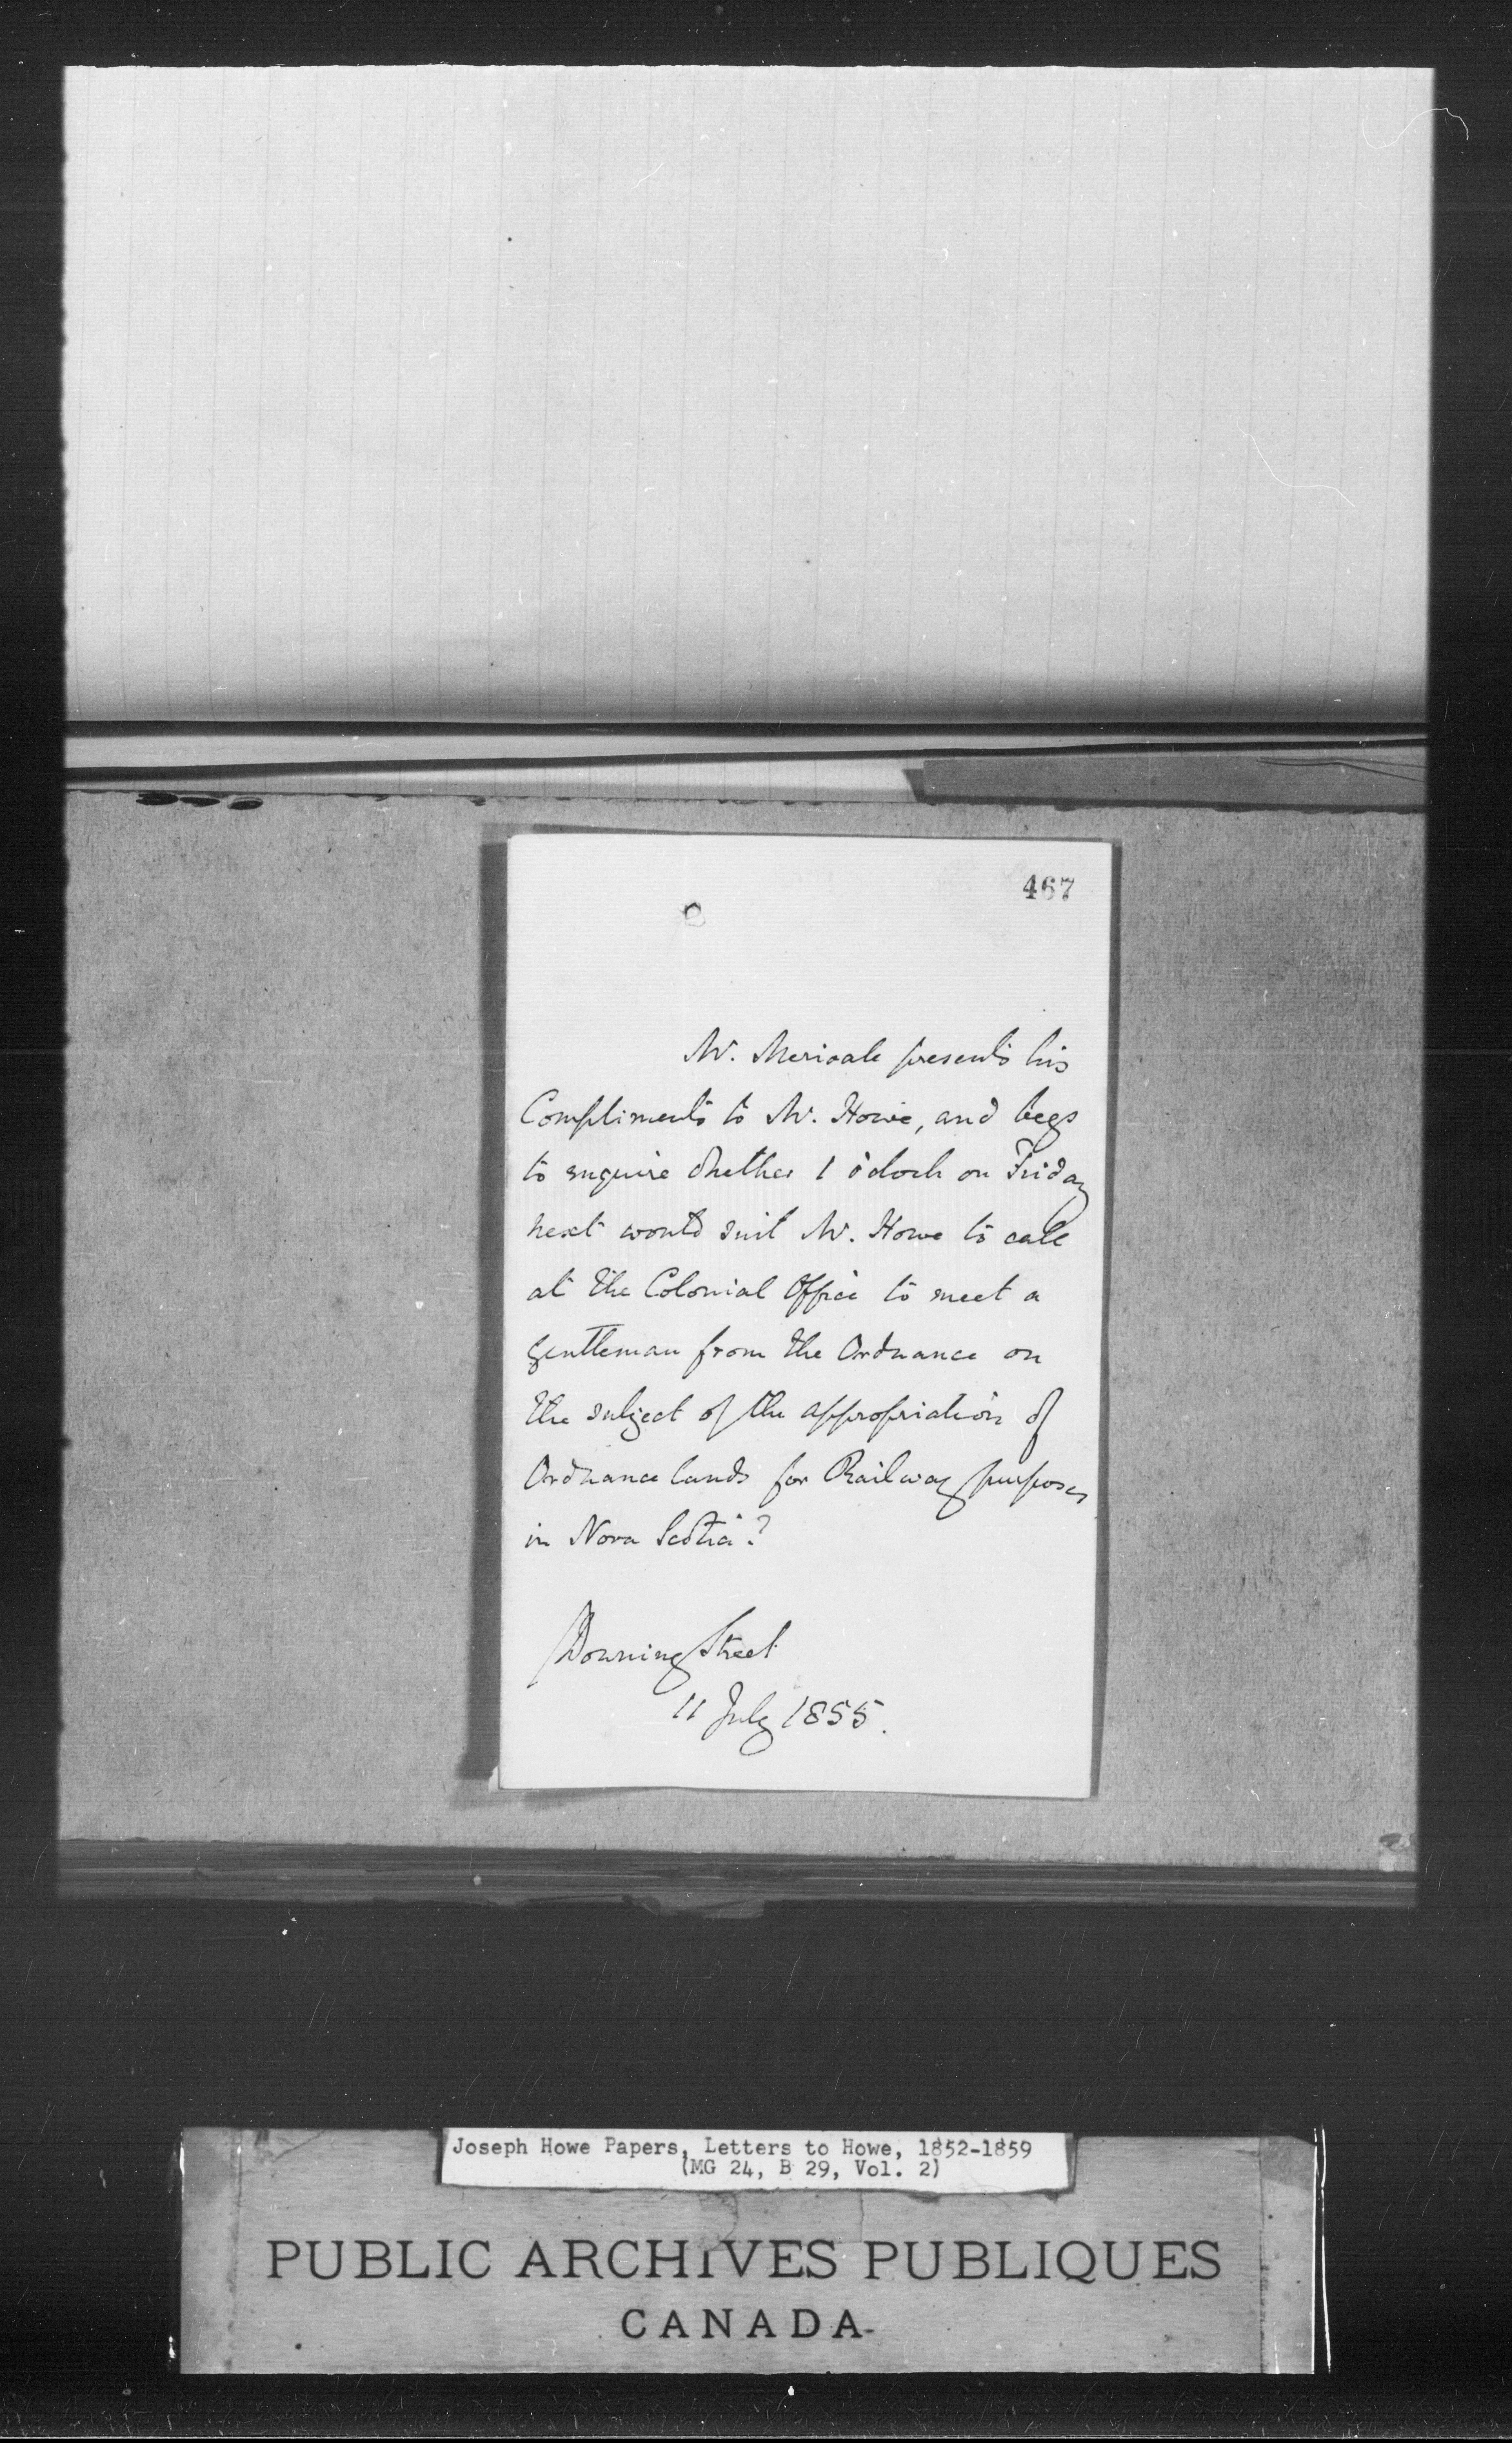 467
Mr. Merivale presents his
Compliments to Mr. Howe, and begs
to enquire whether 1 o'clock on Friday
next would suit Mr. Howe to call
at the Colonial Office to meet a
gentleman from the Ordnance on
the subject of the appropriation of
Ordnance lands for Railway purposes
in Nova Scotia?
Downing Street
11 July 1855.
Joseph Howe Papers, Letters to Howe, 1852-1859
(MG 24, B 29, Vol. 2)
PUBLIC ARCHIVES PUBLIQUES
CANADA